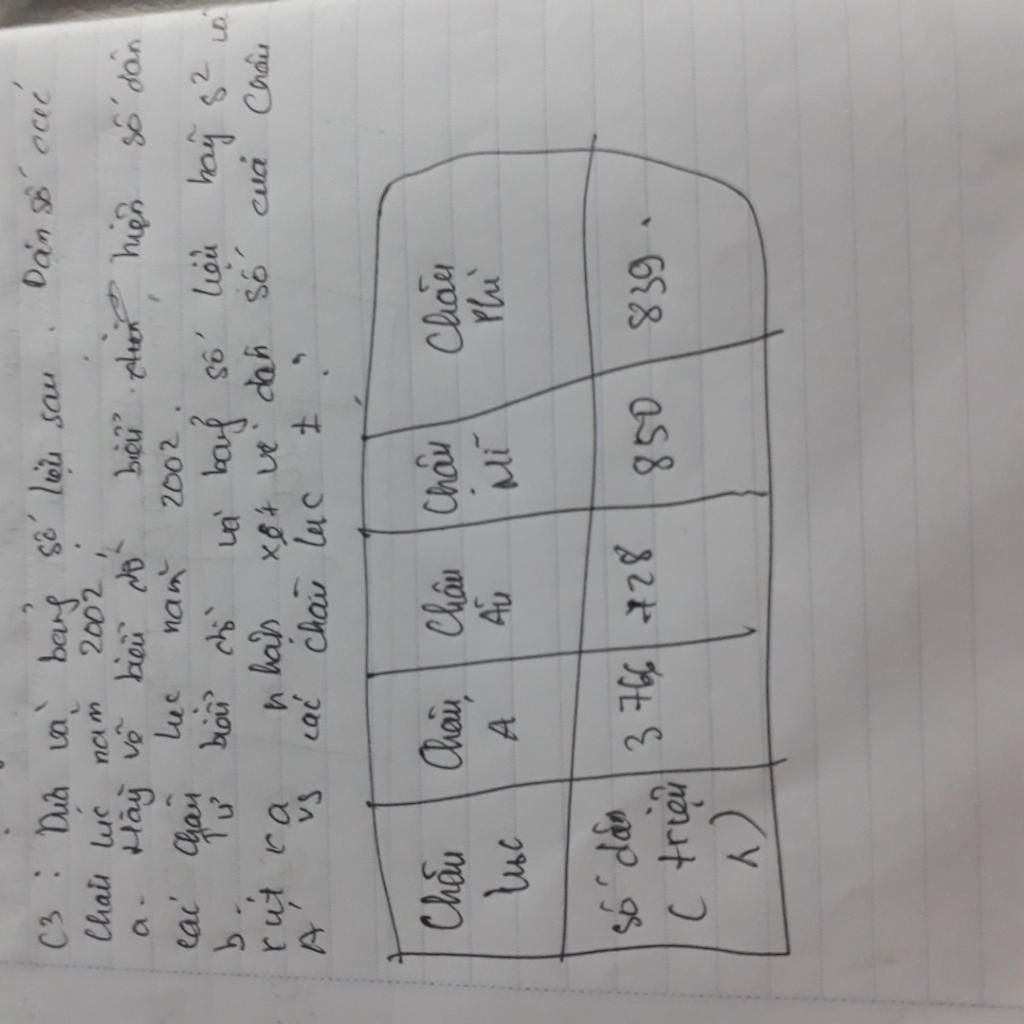 C3 : Dựa và bảng số liệu sau . Dân số các
Châu lục năm 2002
a- Hãy vẽ biểu đồ biểu hiện số dân
các châu lục năm 2002.
b. Từ biểu đồ và bảng số liệu hãy s² và
rút ra nhận xét về dân số của Châu
Á vs các châu lục ≠
Châu lục | Châu Á | Châu Âu | Châu Mĩ | Châu Phi
Số dân ( triệu ) | 3 766 | 728 | 850 | 839 .